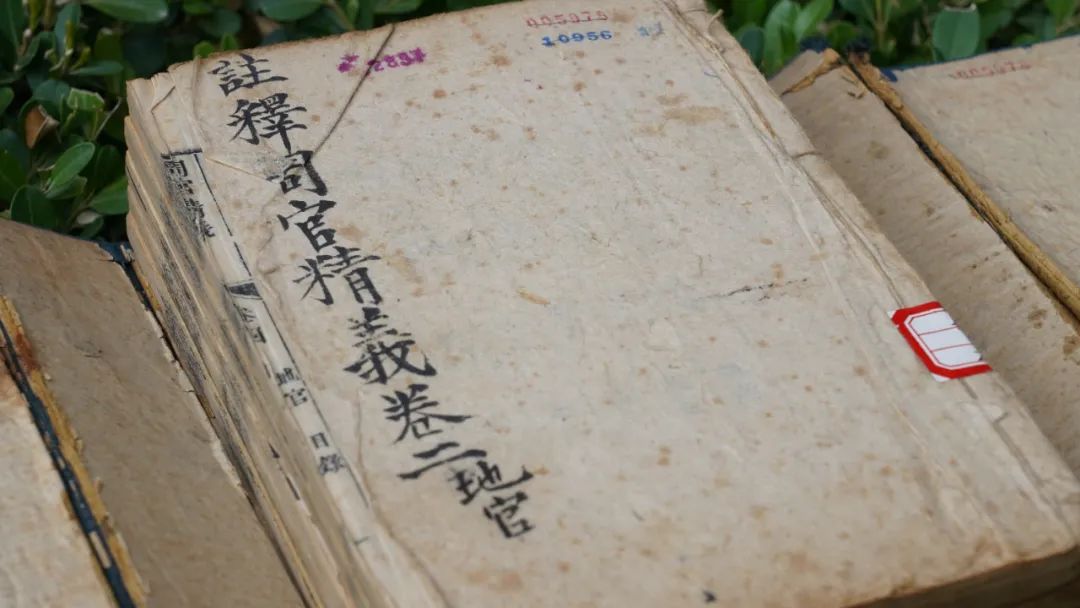 10956
註釋周官精義卷二地官
周官精義
地官 目錄